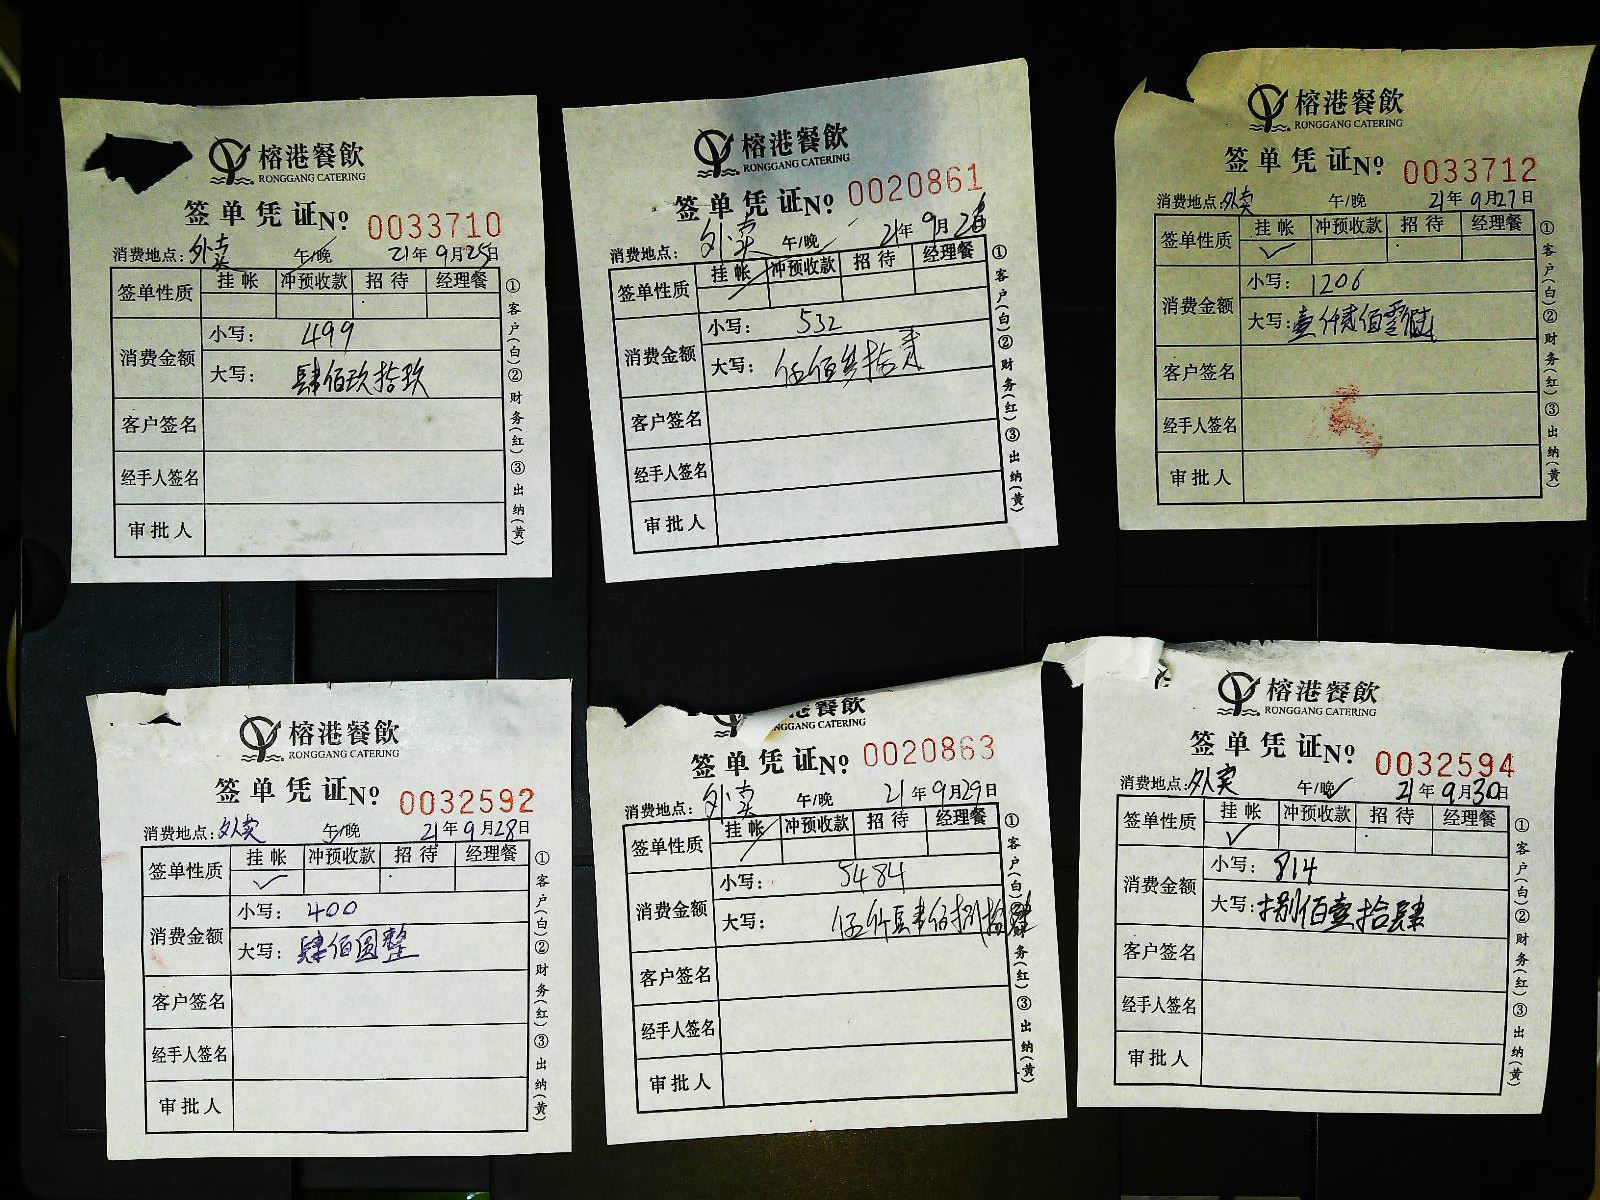 榕港餐飲
RONGGANG CATERING
签单凭证No. 0033710
消费地点：外卖 午/晚 21年9月25日
签单性质 挂帐 冲预收款 招待 经理餐
消费金额 小写： 499
大写： 肆佰玖拾玖
客户签名
经手人签名
审批人
①客户(白)②财务(红)③出纳(黄)
榕港餐飲
RONGGANG CATERING
签单凭证No. 0020861
消费地点：外卖 午/晚 21年9月26日
签单性质 挂帐 冲预收款 招待 经理餐
消费金额 小写： 532
大写： 伍佰叁拾贰
客户签名
经手人签名
审批人
①客户(白)②财务(红)③出纳(黄)
榕港餐飲
RONGGANG CATERING
签单凭证No. 0033712
消费地点：外卖 午/晚 21年9月27日
签单性质 挂帐 冲预收款 招待 经理餐
消费金额 小写： 1206
大写：壹仟贰佰零陆
客户签名
经手人签名
审批人
①客户(白)②财务(红)③出纳(黄)
榕港餐飲
RONGGANG CATERING
签单凭证No. 0032592
消费地点：外卖 午/晚 21年9月28日
签单性质 挂帐 冲预收款 招待 经理餐
消费金额 小写： 400
大写： 肆佰圆整
客户签名
经手人签名
审批人
①客户(白)②财务(红)③出纳(黄)
港餐飲
NGGANG CATERING
签单凭证No. 0020863
消费地点：外卖 午/晚 21年9月29日
签单性质 挂帐 冲预收款 招待 经理餐
消费金额 小写： 5484
大写： 伍仟肆佰捌拾肆
客户签名
经手人签名
审批人
①客户(白)②财务(红)③出纳(黄)
榕港餐飲
RONGGANG CATERING
签单凭证No. 0032594
消费地点：外卖 午/晚 21年9月30日
签单性质 挂帐 冲预收款 招待 经理餐
消费金额 小写： 814
大写：捌佰壹拾肆
客户签名
经手人签名
审批人
①客户(白)②财务(红)③出纳(黄)